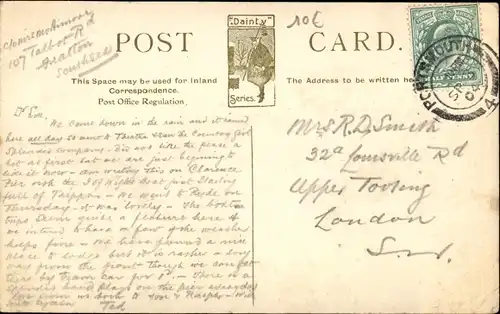 107 Talbot Rd
Southsea
10€
POST CARD.
"Dainty"
Series.
This Space may be used for Inland
Correspondence.
Post Office Regulation.
The Address to be written here
HALF PENNY
PORTSMOUTH
Mrs R.D. Smith
32a Louisville Rd
Upper Tooting
London
S.W.
We came down in the rain and it rained
here all day so went to Theatre & saw the Country Girl
Splendid Company. Did not like the place a
bit at first but we are just beginning to
like it now. Am writing this on Clarence
Pier with the I of Wight boat just starting
full of Trippers. We went to Ryde on
Thursday. It was lovely. The boating
trips seem quite a feature here &
we intend to have a few if the weather
keeps fine. We have found a nice
place to lodge but it is rather a long
way from the front though we can get
there by tram car for 1d. There is a
splendid band plays on the pier everyday
Love from us both to you &
Ted